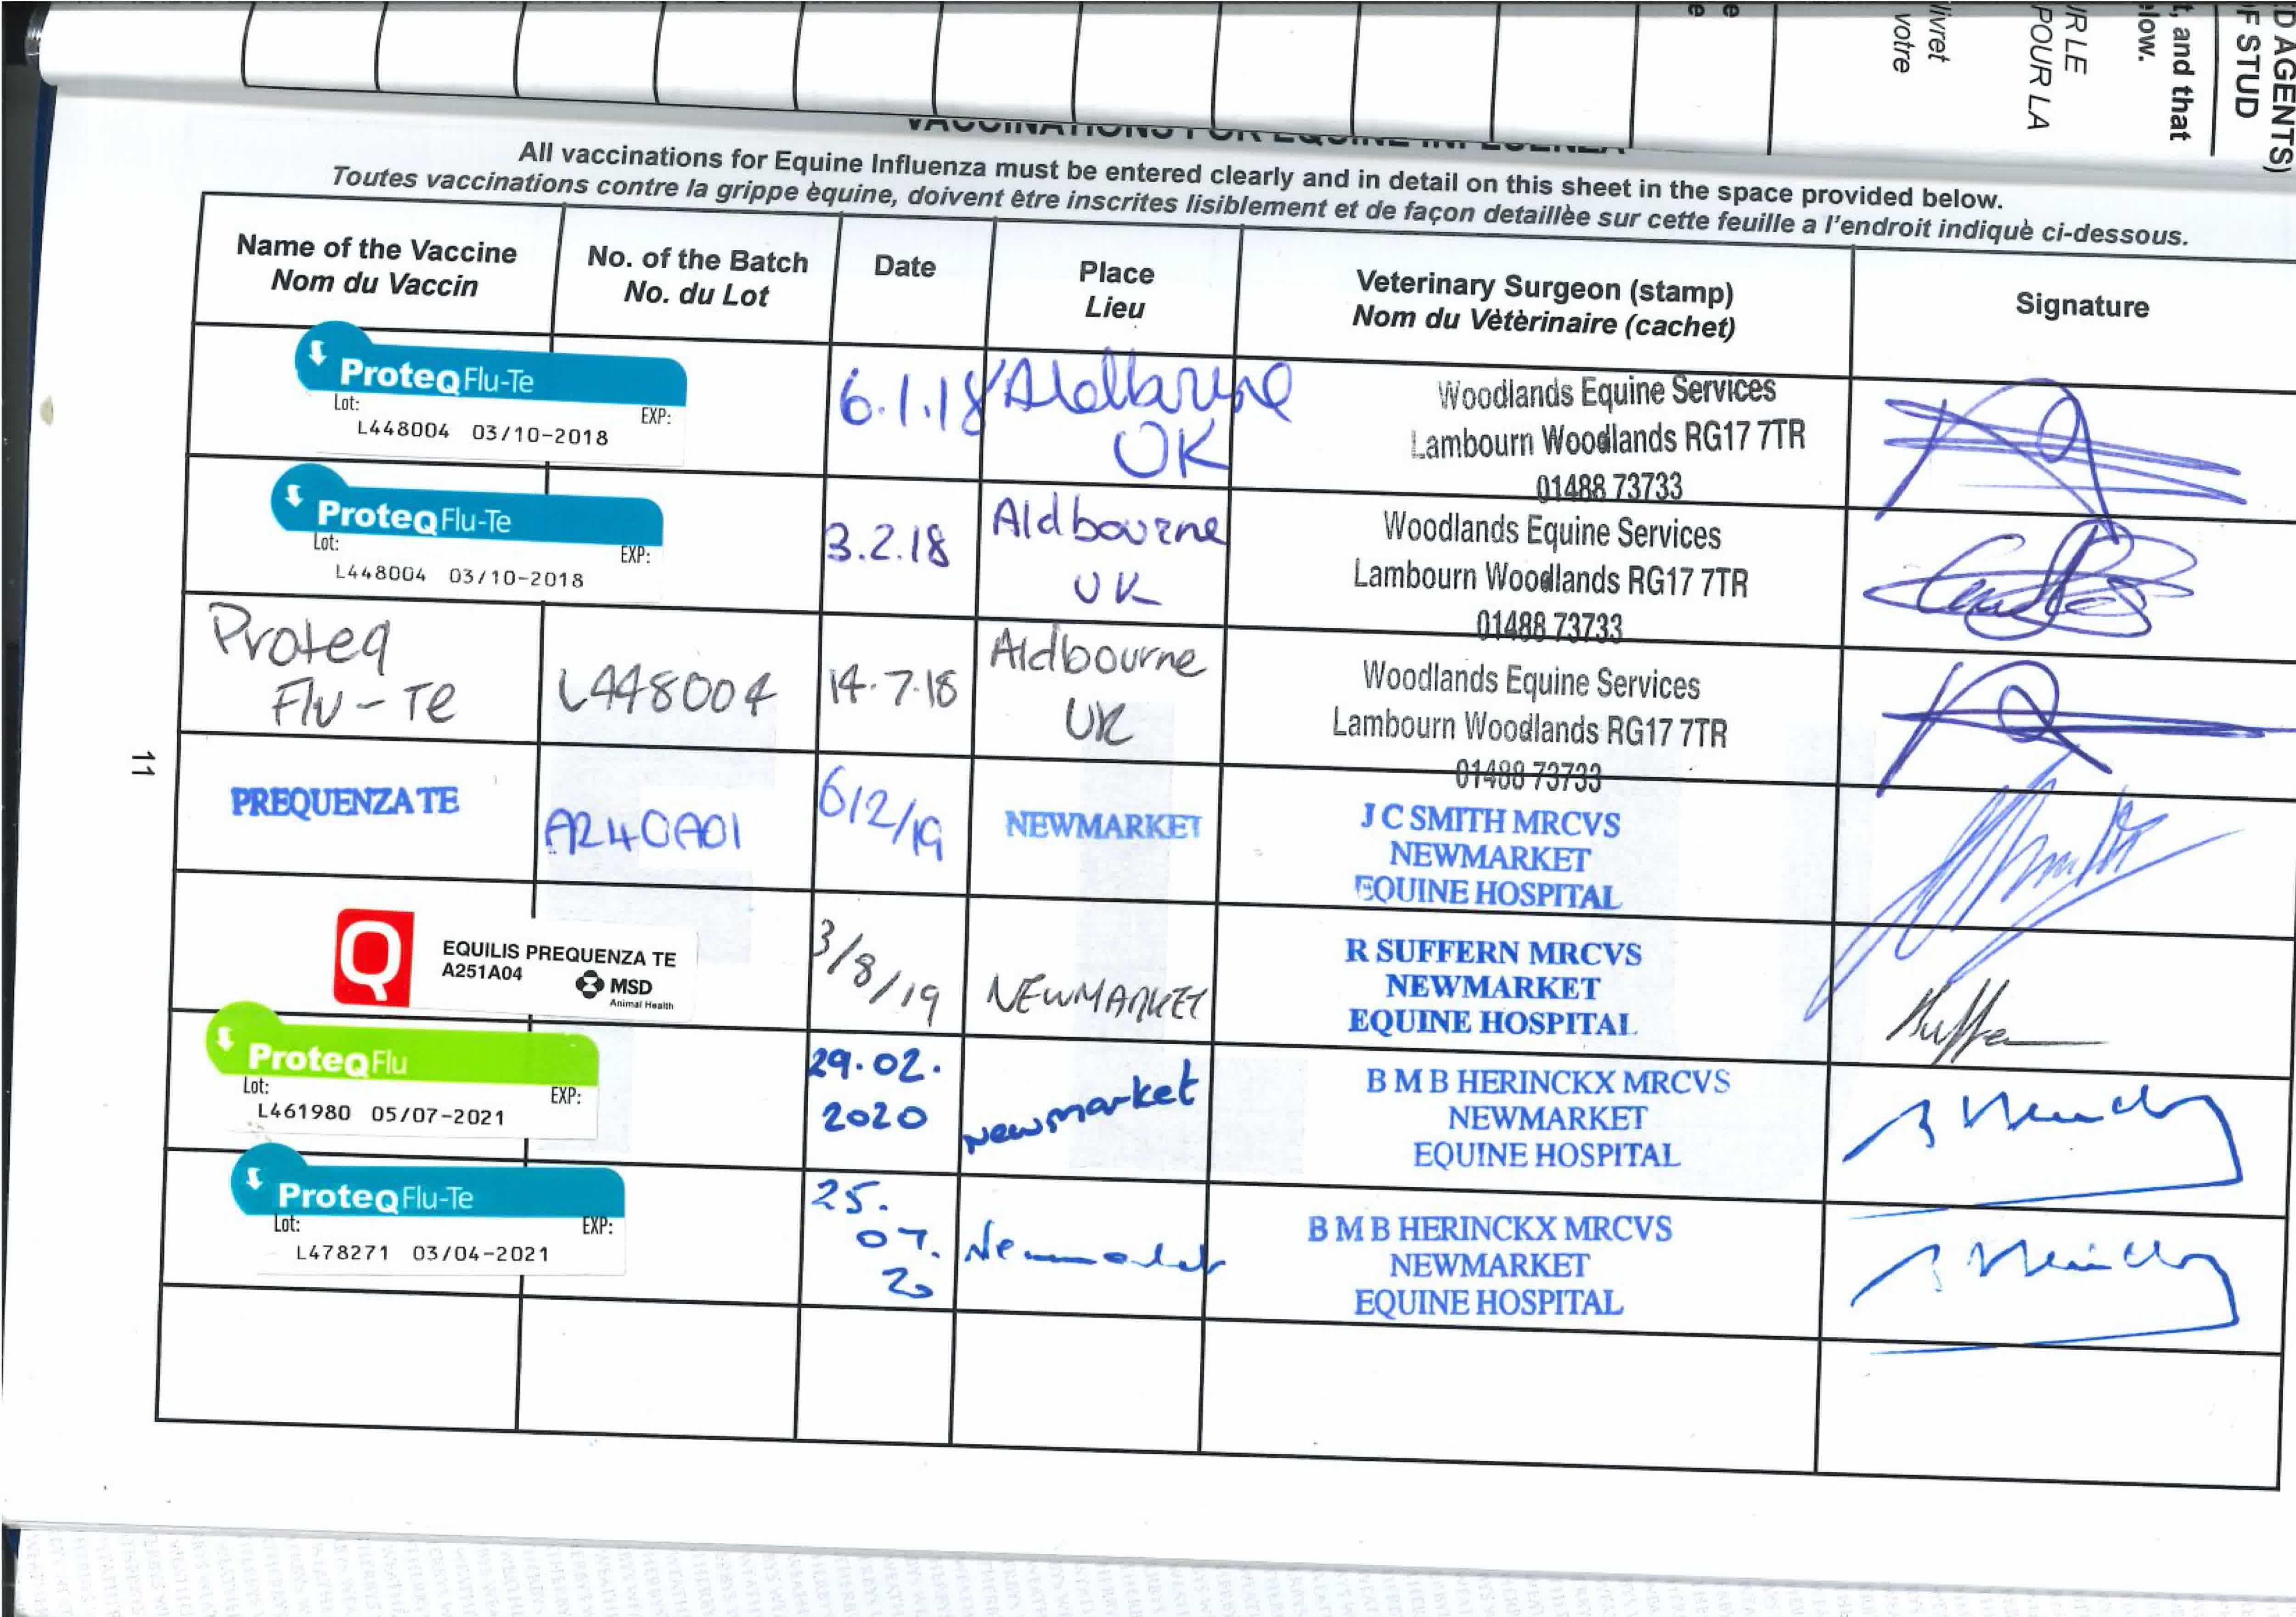 D AGENTS)
F STUD
t, and that
elow.
JR LE
POUR LA
livret
votre
e
e
VACCINATIONS FOR EQUINE INFLUENZA
All vaccinations for Equine Influenza must be entered clearly and in detail on this sheet in the space provided below.
Toutes vaccinations contre la grippe èquine, doivent être inscrites lisiblement et de façon detaillèe sur cette feuille a l'endroit indiquè ci-dessous.
Name of the Vaccine
Nom du Vaccin
No. of the Batch
No. du Lot
Date
Place
Lieu
Veterinary Surgeon (stamp)
Nom du Vètèrinaire (cachet)
Signature
ProteQ Flu-Te
Lot: EXP:
L448004 03/10-2018
6.1.18
Aldbourne
UK
Woodlands Equine Services
Lambourn Woodlands RG17 7TR
01488 73733
ProteQ Flu-Te
Lot: EXP:
L448004 03/10-2018
3.2.18
Aldbourne
UK
Woodlands Equine Services
Lambourn Woodlands RG17 7TR
01488 73733
Proteq
Flu-Te
L448004
14.7.18
Aldbourne
UK
Woodlands Equine Services
Lambourn Woodlands RG17 7TR
01488 73733
PREQUENZA TE
A240A01
6/2/19
NEWMARKET
J C SMITH MRCVS
NEWMARKET
EQUINE HOSPITAL
Q
EQUILIS PREQUENZA TE
A251A04
MSD
Animal Health
3/8/19
NEWMARKET
R SUFFERN MRCVS
NEWMARKET
EQUINE HOSPITAL
ProteQ Flu
Lot: EXP:
L461980 05/07-2021
29.02.
2020
Newmarket
B M B HERINCKX MRCVS
NEWMARKET
EQUINE HOSPITAL
ProteQ Flu-Te
Lot: EXP:
L478271 03/04-2021
25.
07.
20
Newmarket
B M B HERINCKX MRCVS
NEWMARKET
EQUINE HOSPITAL
11